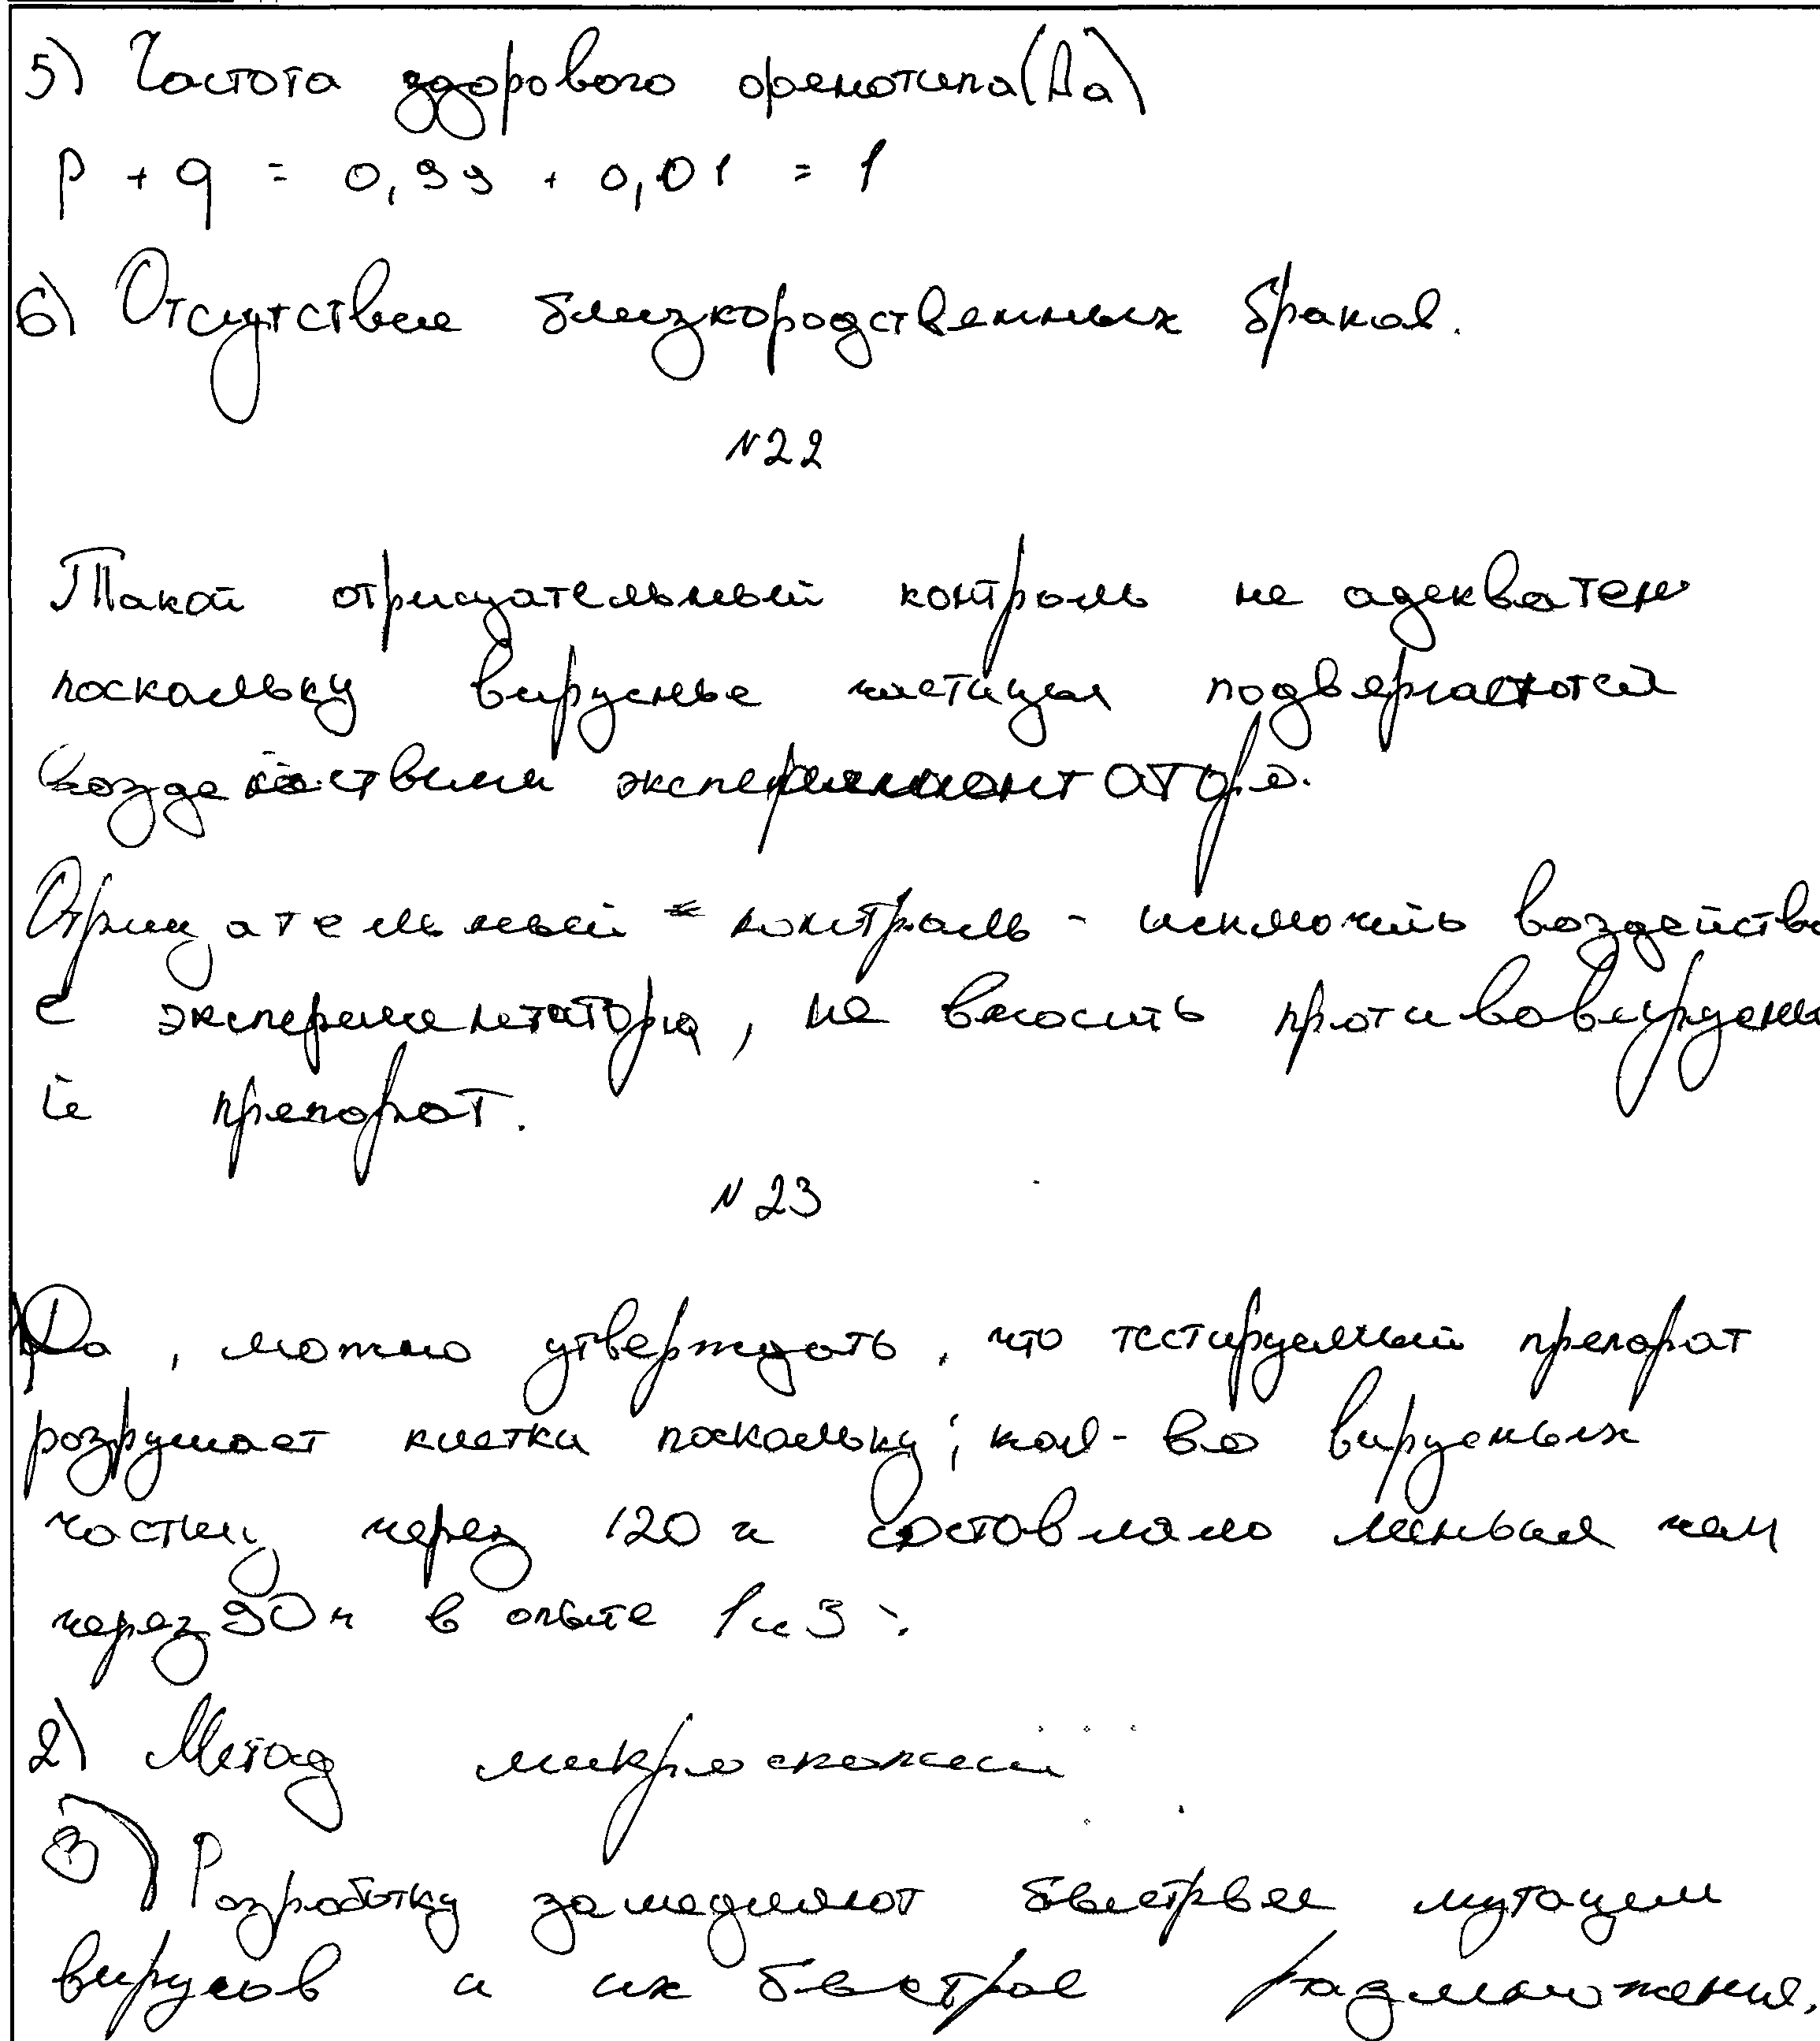 5) Частота здорового фенотипа (Аа)
p + q = 0,99 + 0,01 = 1
6) Отсутствие близкородственных браков.
№22
Такой отрицательный контроль не адекватен
поскольку вирусные частицы подвергаются
воздействию экспериментатора.
Отрицательный контроль - исключить воздействи
е эксперементатора, не вносить противовирусны
й препарат.
№23
1) Да, можно утверждать, что тестируемый препарат
разрушает клетки поскольку; кол-во вирусных
частиц через 120 ч составляло меньше чем
через 90 ч в опыте 1 и 3.
2) Метод микроскопии
3) Разработку замедляют быстрые мутации
вирусов и их быстрое размножения.